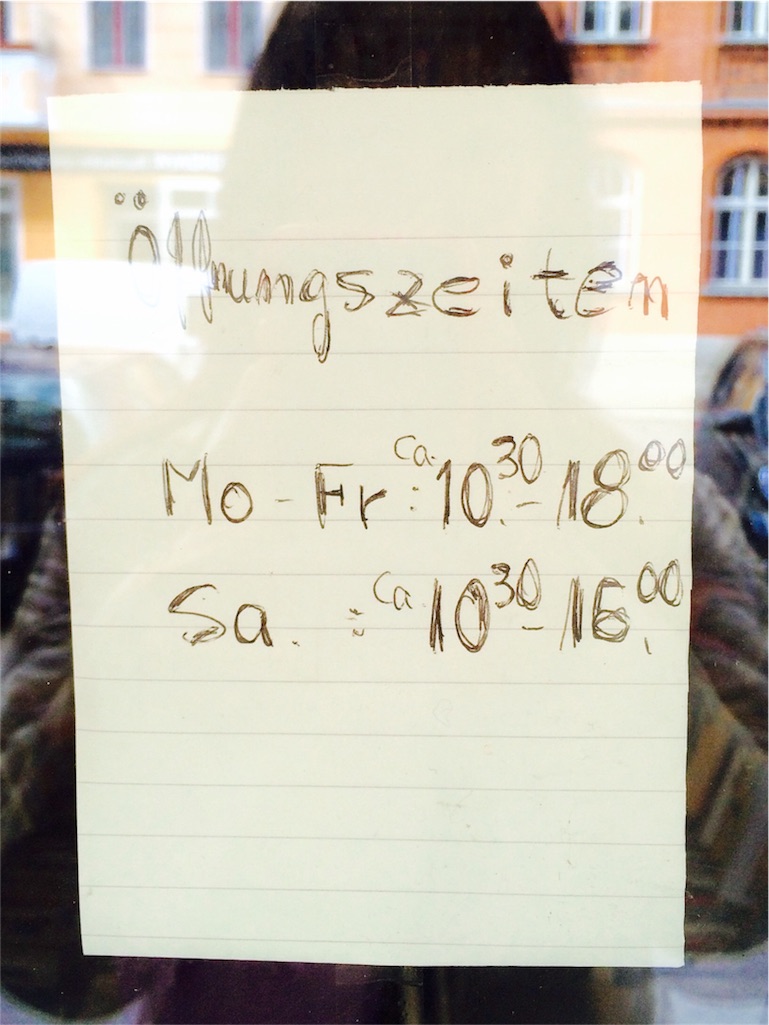 Öffnungszeiten
Mo - Fr : ca. 10.30 - 18.00
Sa. : ca. 10 30 - 16.00